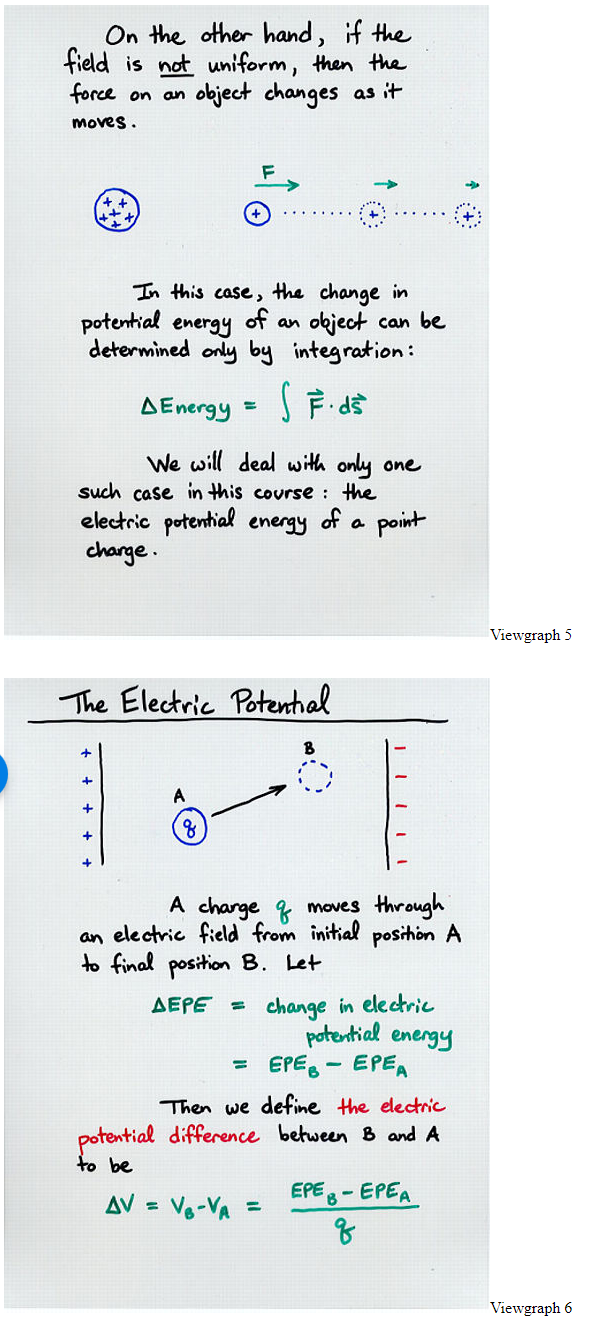 On the other hand, if the
field is not uniform, then the
force on an object changes as it
moves.
F
+ + + + + + +
+ + +
In this case, the change in
potential energy of an object can be
determined only by integration:
ΔEnergy = ∫ F⃗ · ds⃗
We will deal with only one
such case in this course : the
electric potential energy of a point
charge.
Viewgraph 5
The Electric Potential
+ + + + +
A
q
B
− − − − −
A charge q moves through
an electric field from initial position A
to final position B. Let
ΔEPE = change in electric
potential energy
= EPE_B − EPE_A
Then we define the electric
potential difference between B and A
to be
ΔV = V_B - V_A = EPE_B - EPE_A
q
Viewgraph 6